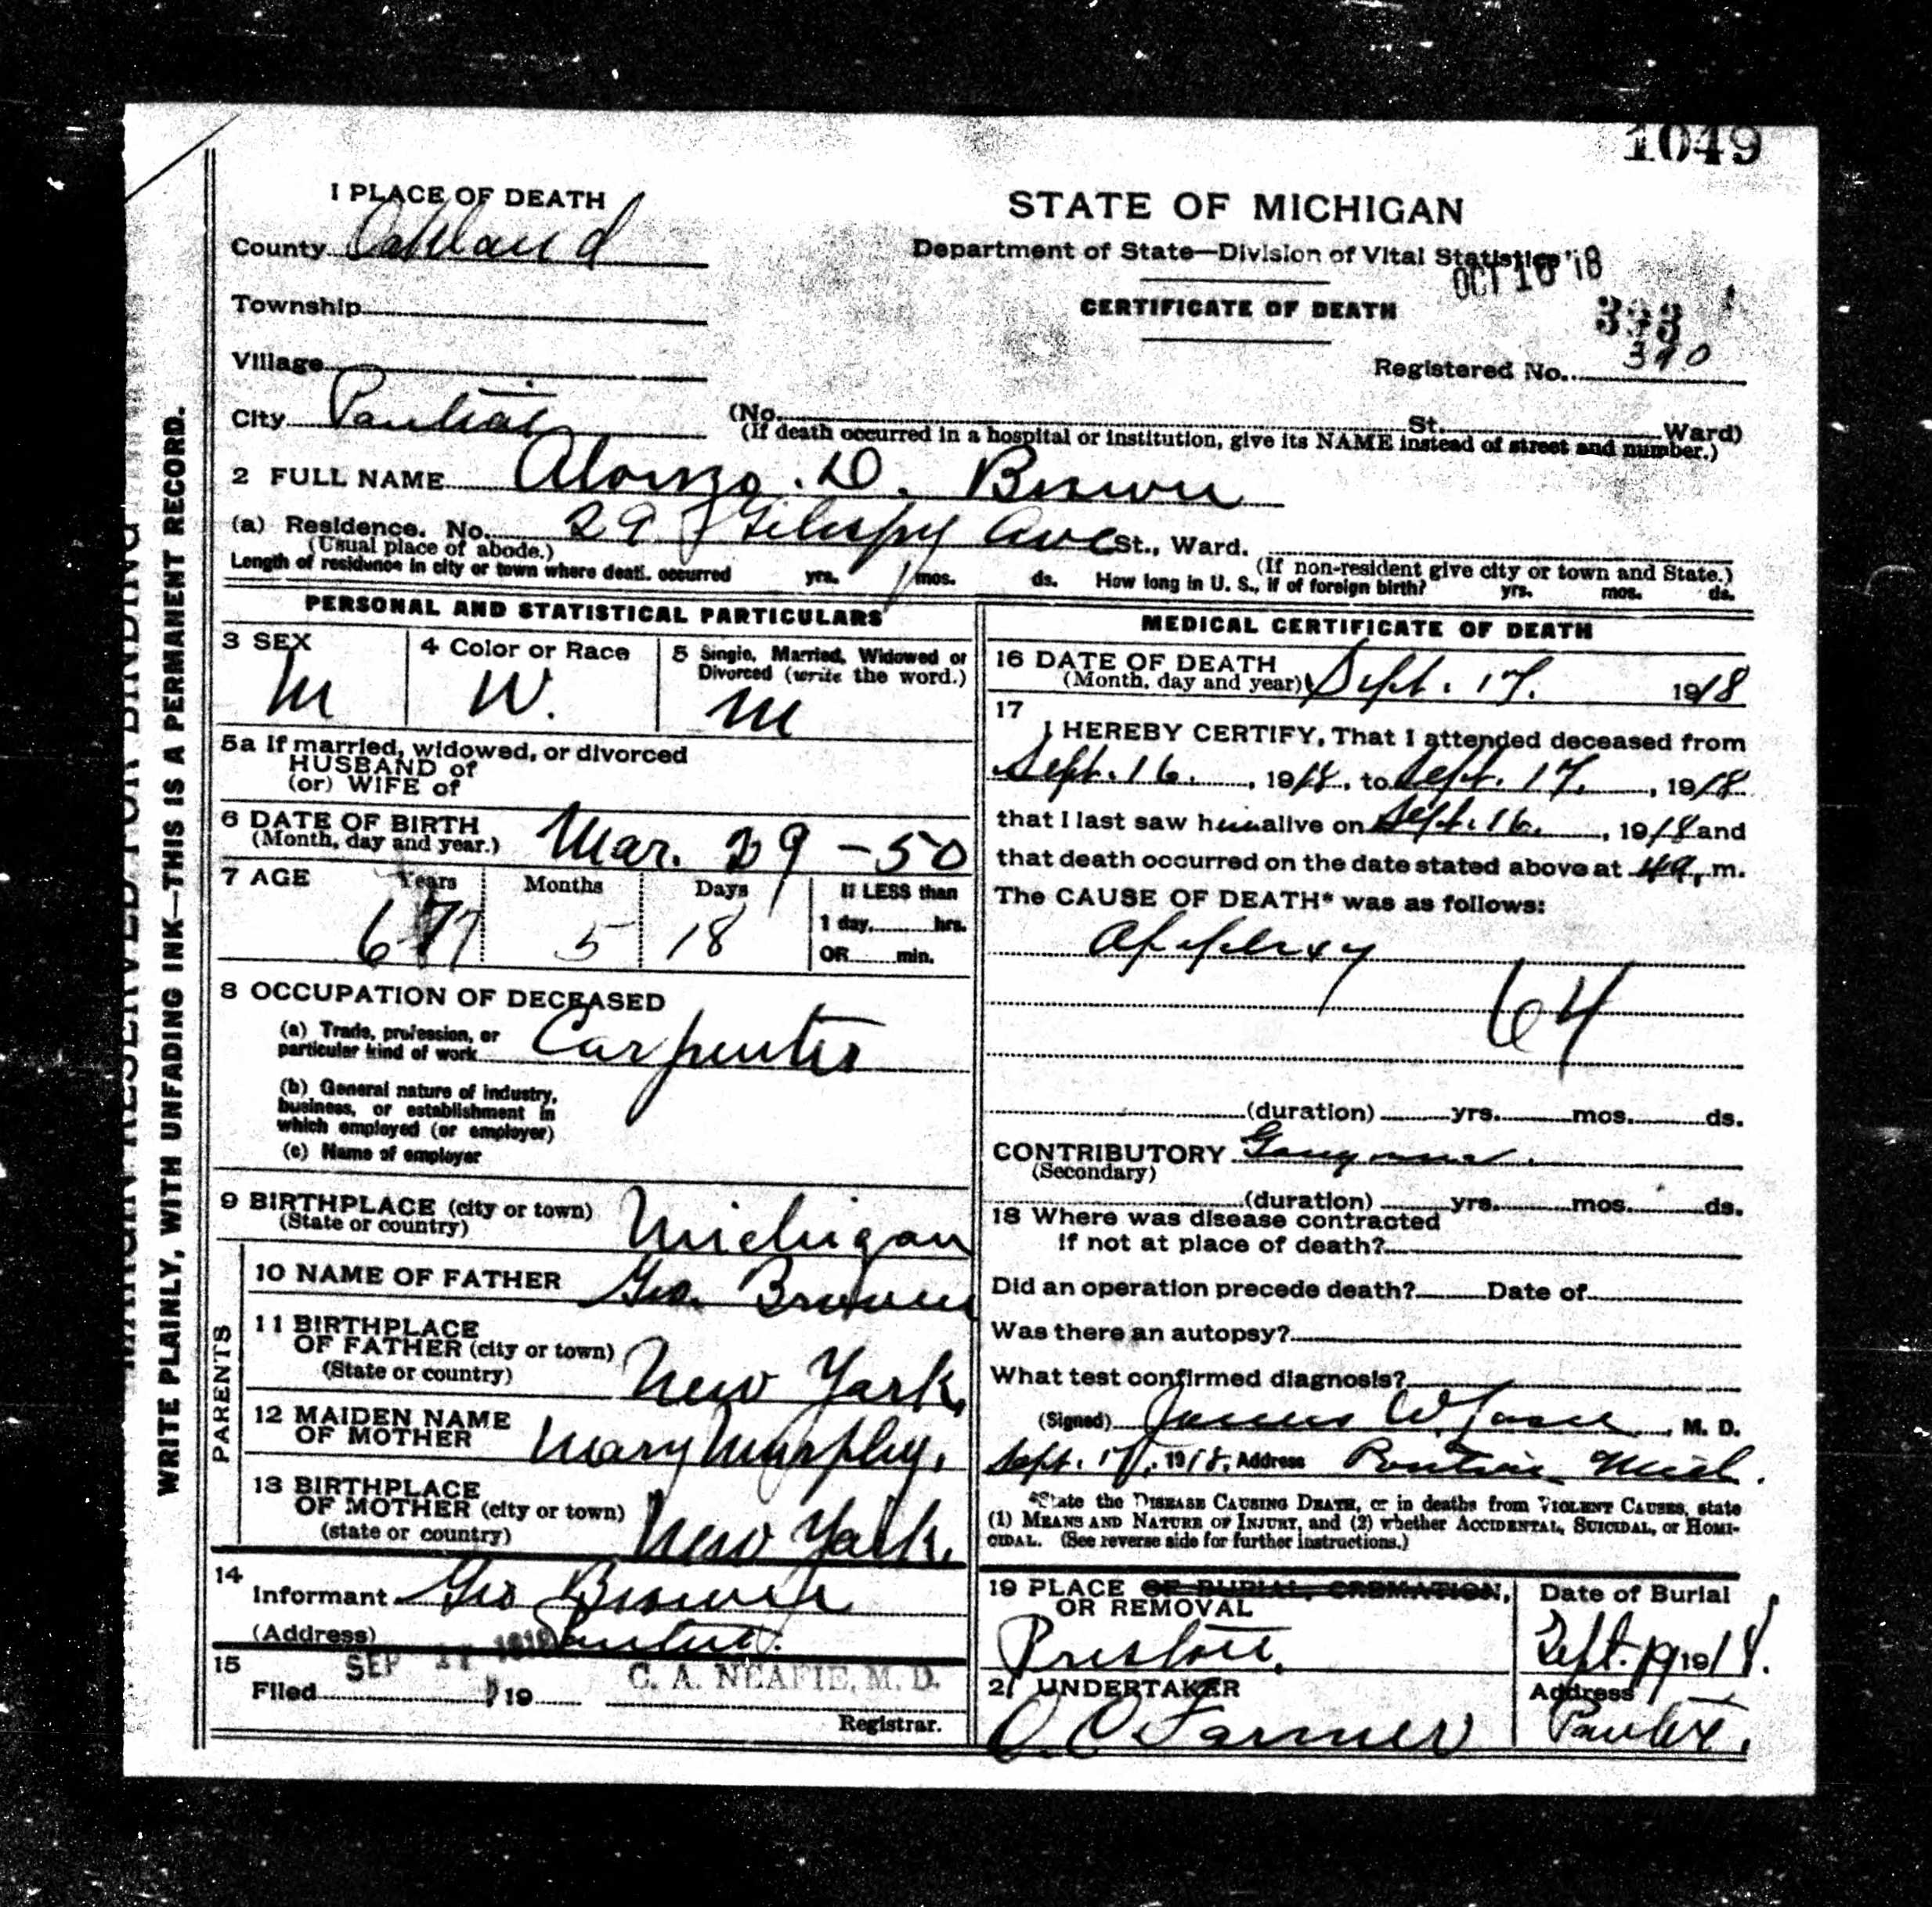 1049
1 PLACE OF DEATH
STATE OF MICHIGAN
County Oakland
Department of State—Division of Vital Statistics
OCT 10 '18
Township
CERTIFICATE OF DEATH
333
Village
Registered No. 390
City Pontiac
(No. St. Ward)
(If death occurred in a hospital or institution, give its NAME instead of street and number.)
2 FULL NAME Alonzo. D. Brown
(a) Residence. No. 29 Gilespy Ave St., Ward.
(Usual place of abode.)
(If non-resident give city or town and State.)
Length of residence in city or town where death occurred yrs. mos. ds. How long in U. S., if of foreign birth? yrs. mos. ds.
PERSONAL AND STATISTICAL PARTICULARS
3 SEX
M
4 Color or Race
W.
5 Single, Married, Widowed or
Divorced (write the word.)
M
5a If married, widowed, or divorced
HUSBAND of
(or) WIFE of
6 DATE OF BIRTH
(Month, day and year.) Mar. 29 - 50
7 AGE Years Months Days If LESS than
5 18 1 day, hrs.
OR min.
8 OCCUPATION OF DECEASED
(a) Trade, profession, or
particular kind of work Carpenter
(b) General nature of industry,
business, or establishment in
which employed (or employer)
(c) Name of employer
9 BIRTHPLACE (city or town)
(State or country) Michigan
PARENTS
10 NAME OF FATHER Geo. Brown
11 BIRTHPLACE
OF FATHER (city or town)
(State or country) New York,
12 MAIDEN NAME
OF MOTHER Mary Murphy,
13 BIRTHPLACE
OF MOTHER (city or town)
(state or country) New York,
14
Informant Geo Brown
(Address) Pontiac.
15 SEP 17 1918
Filed 19 C. A. NEAFIE, M. D.
Registrar.
MEDICAL CERTIFICATE OF DEATH
16 DATE OF DEATH
(Month, day and year) Sept. 17. 1918
17
I HEREBY CERTIFY, That I attended deceased from
Sept. 16. , 1918, to Sept. 17, , 1918
that I last saw him alive on Sept. 16. , 1918 and
that death occurred on the date stated above at 4 a, m.
The CAUSE OF DEATH* was as follows:
Apoplexy
64
(duration) yrs. mos. ds.
CONTRIBUTORY Gangrene.
(Secondary)
(duration) yrs. mos. ds.
18 Where was disease contracted
if not at place of death?
Did an operation precede death? Date of
Was there an autopsy?
What test confirmed diagnosis?
(Signed) James W , M. D.
Sept. 17, 1918, Address Pontiac Mich.
*State the DISEASE CAUSING DEATH, or in deaths from VIOLENT CAUSES, state
(1) MEANS AND NATURE OF INJURY, and (2) whether ACCIDENTAL, SUICIDAL, or HOMI-
CIDAL. (See reverse side for further instructions.)
19 PLACE OF BURIAL, CREMATION,
OR REMOVAL
Date of Burial
Sept. 19 1918.
UNDERTAKER
Farmer
Address
Pontiac,
MARGIN RESERVED FOR BINDING
WRITE PLAINLY, WITH UNFADING INK—THIS IS A PERMANENT RECORD.